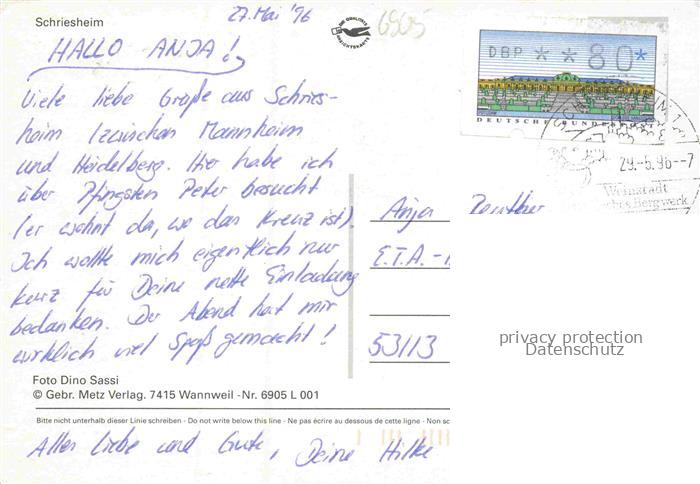 Schriesheim
27. Mai '96
6905
HALLO ANJA!
Viele liebe Grüße aus Schries-
heim (zwischen Mannheim
und Heidelberg. Hier habe ich
über Pfingsten Peter besucht
(er wohnt da, wo das Kreuz ist).
Ich wollte mich eigentlich nur
kurz für Deine nette Einladung
bedanken. Der Abend hat mir
wirklich viel Spaß gemacht!
DBP * * 80 *
DEUTSCHE BUNDES
29.-5.96--7
Weinstadt
Bergwerk
Anja
E.T.A.-
53113
privacy protection
Datenschutz
Foto Dino Sassi
© Gebr. Metz Verlag. 7415 Wannweil -Nr. 6905 L 001
Bitte nicht unterhalb dieser Linie schreiben - Do not write below this line - Ne pas écrire au dessous de cette ligne - Non sc
Alles Liebe und Gute, Deine Hilke